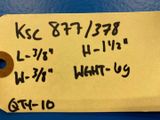 KSC 877/378
L-3/8" H-1½"
W-3/8" WGHT-6g
QTY-10